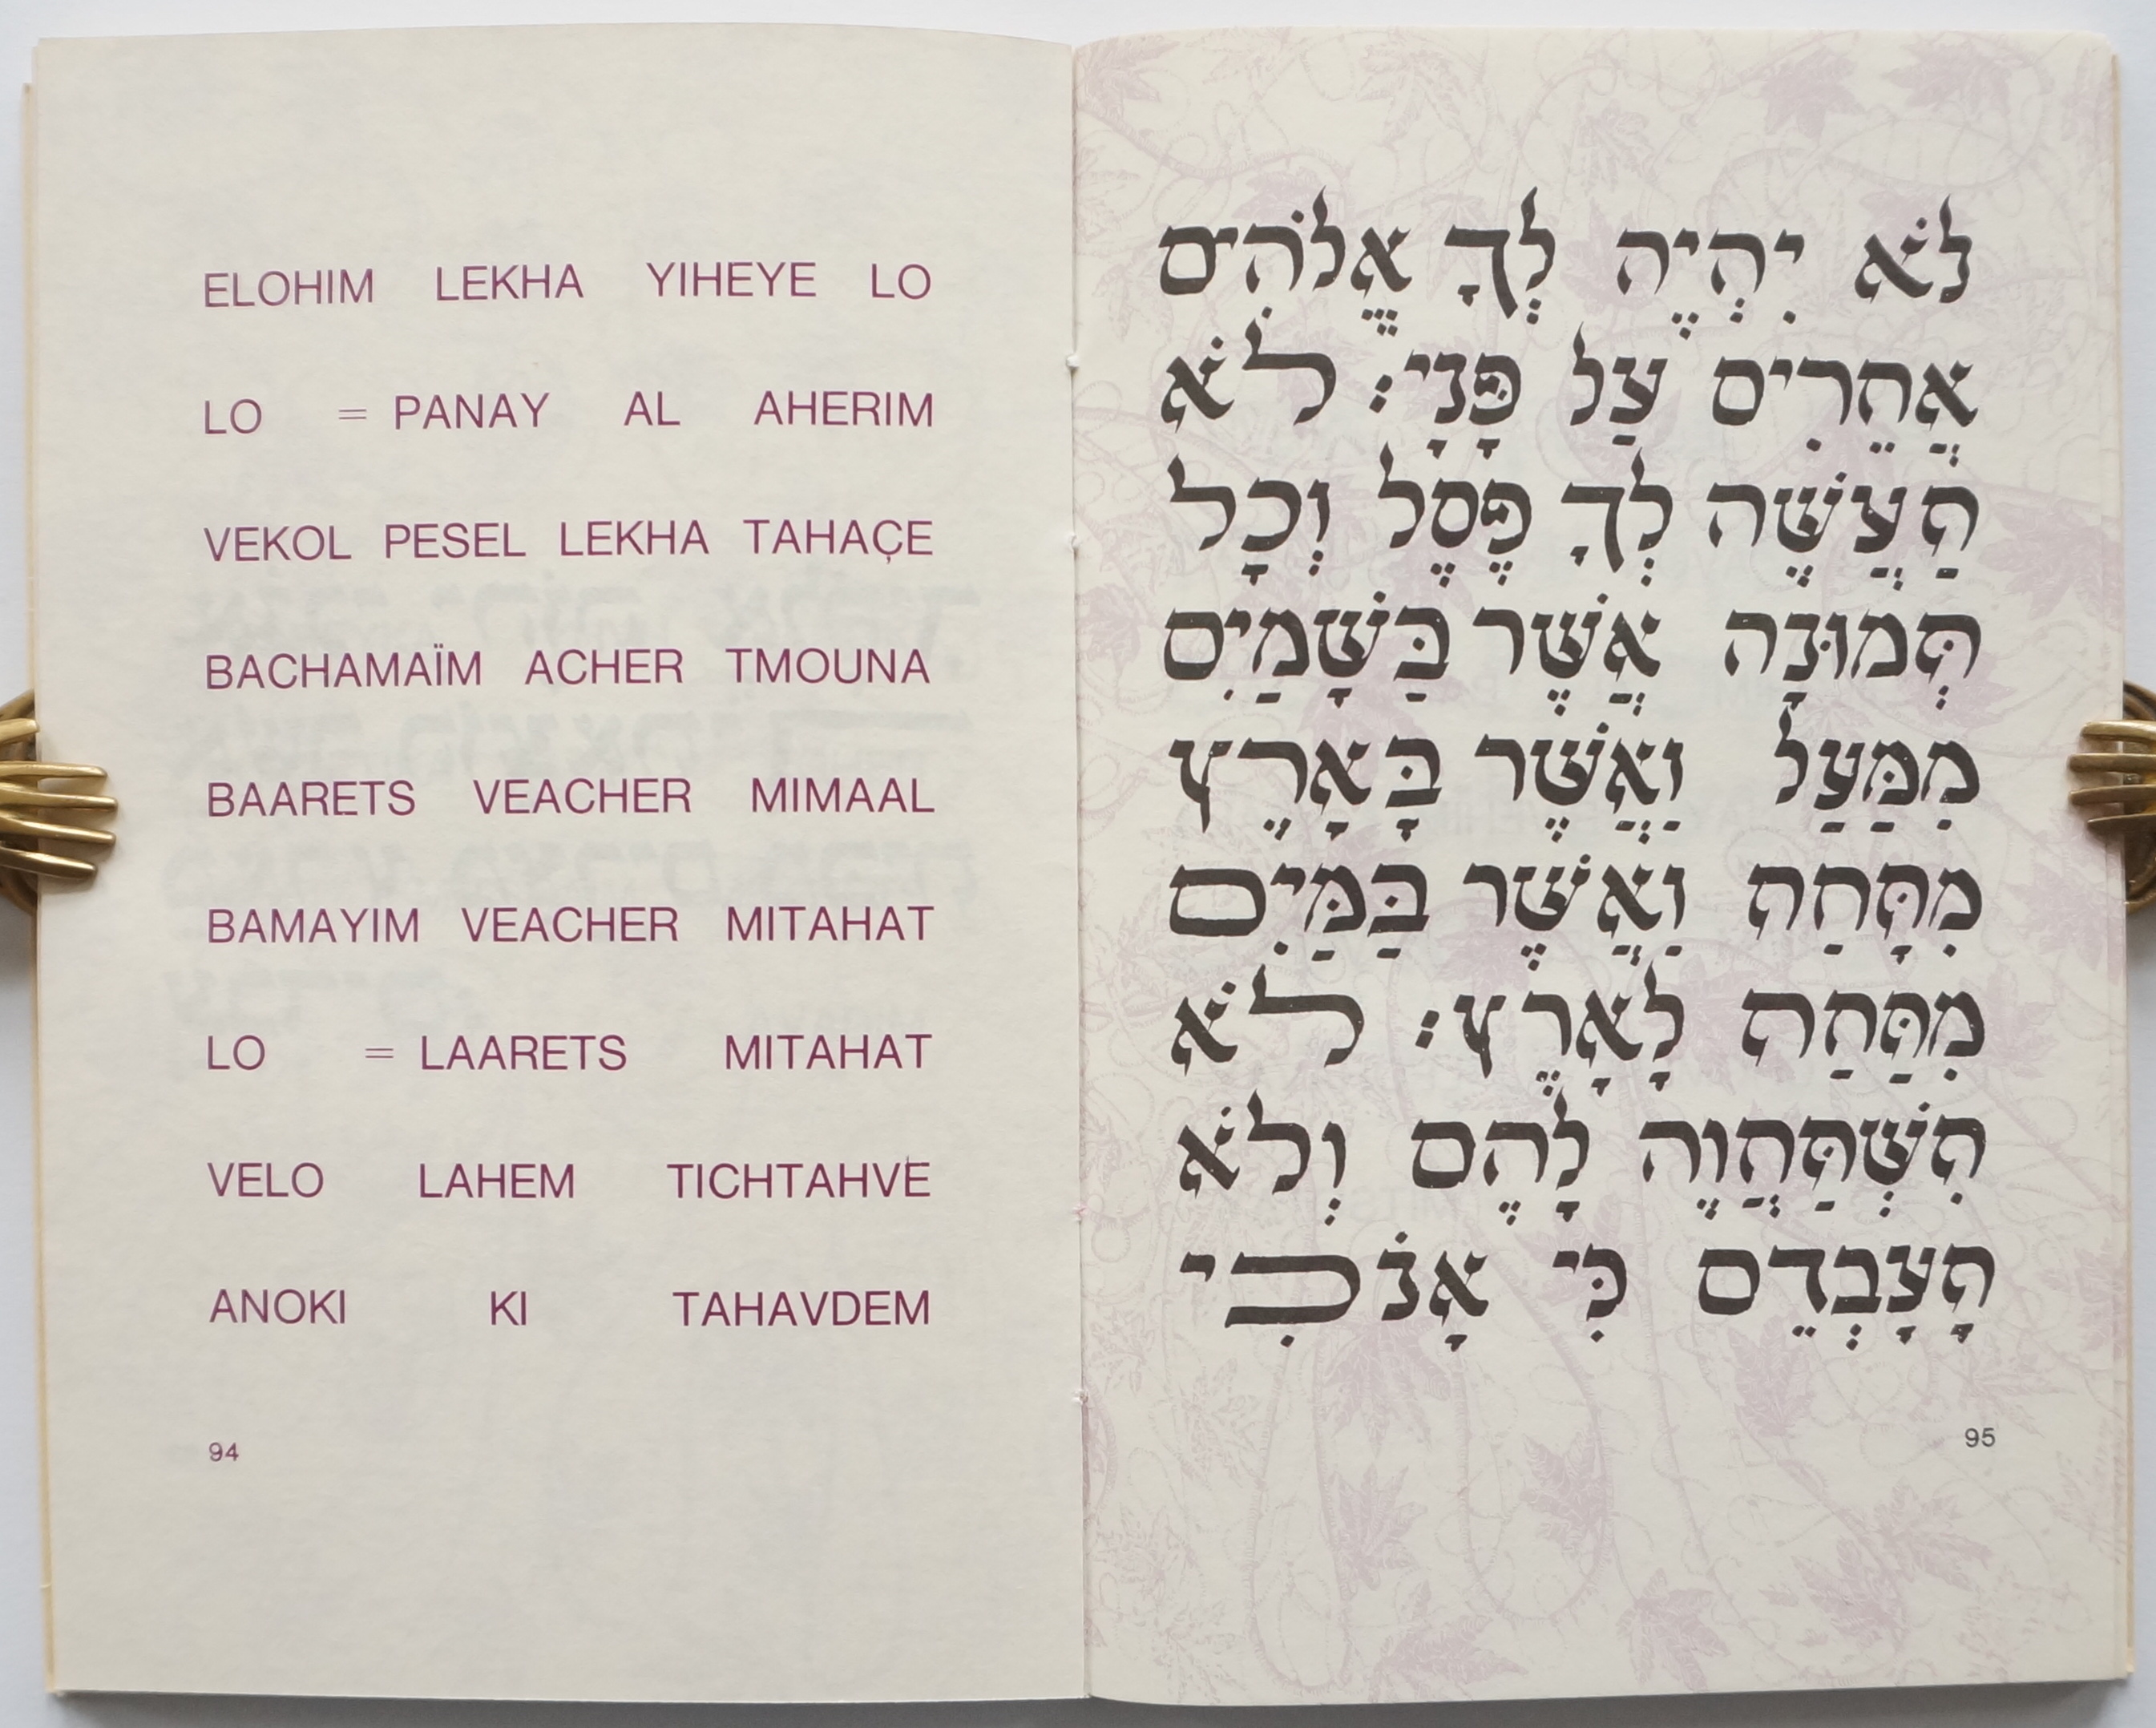 ELOHIM LEKHA YIHEYE LO
LO = PANAY AL AHERIM
VEKOL PESEL LEKHA TAHAÇE
BACHAMAÏM ACHER TMOUNA
BAARETS VEACHER MIMAAL
BAMAYIM VEACHER MITAHAT
LO = LAARETS MITAHAT
VELO LAHEM TICHTAHVE
ANOKI KI TAHAVDEM
94
לֹא יִהְיֶה לְךָ אֱלֹהִים
אֲחֵרִים עַל פָּנָי׃ לֹא
תַעֲשֶׂה לְךָ פֶסֶל וְכָל
תְּמוּנָה אֲשֶׁר בַּשָׁמַיִם
מִמַּעַל וַאֲשֶׁר בָּאָרֶץ
מִתָּחַת וַאֲשֶׁר בַּמַּיִם
מִתַּחַת לָאָרֶץ׃ לֹא
תִשְׁתַּחֲוֶה לָהֶם וְלֹא
תָעָבְדֵם כִּי אָנֹכִי
95